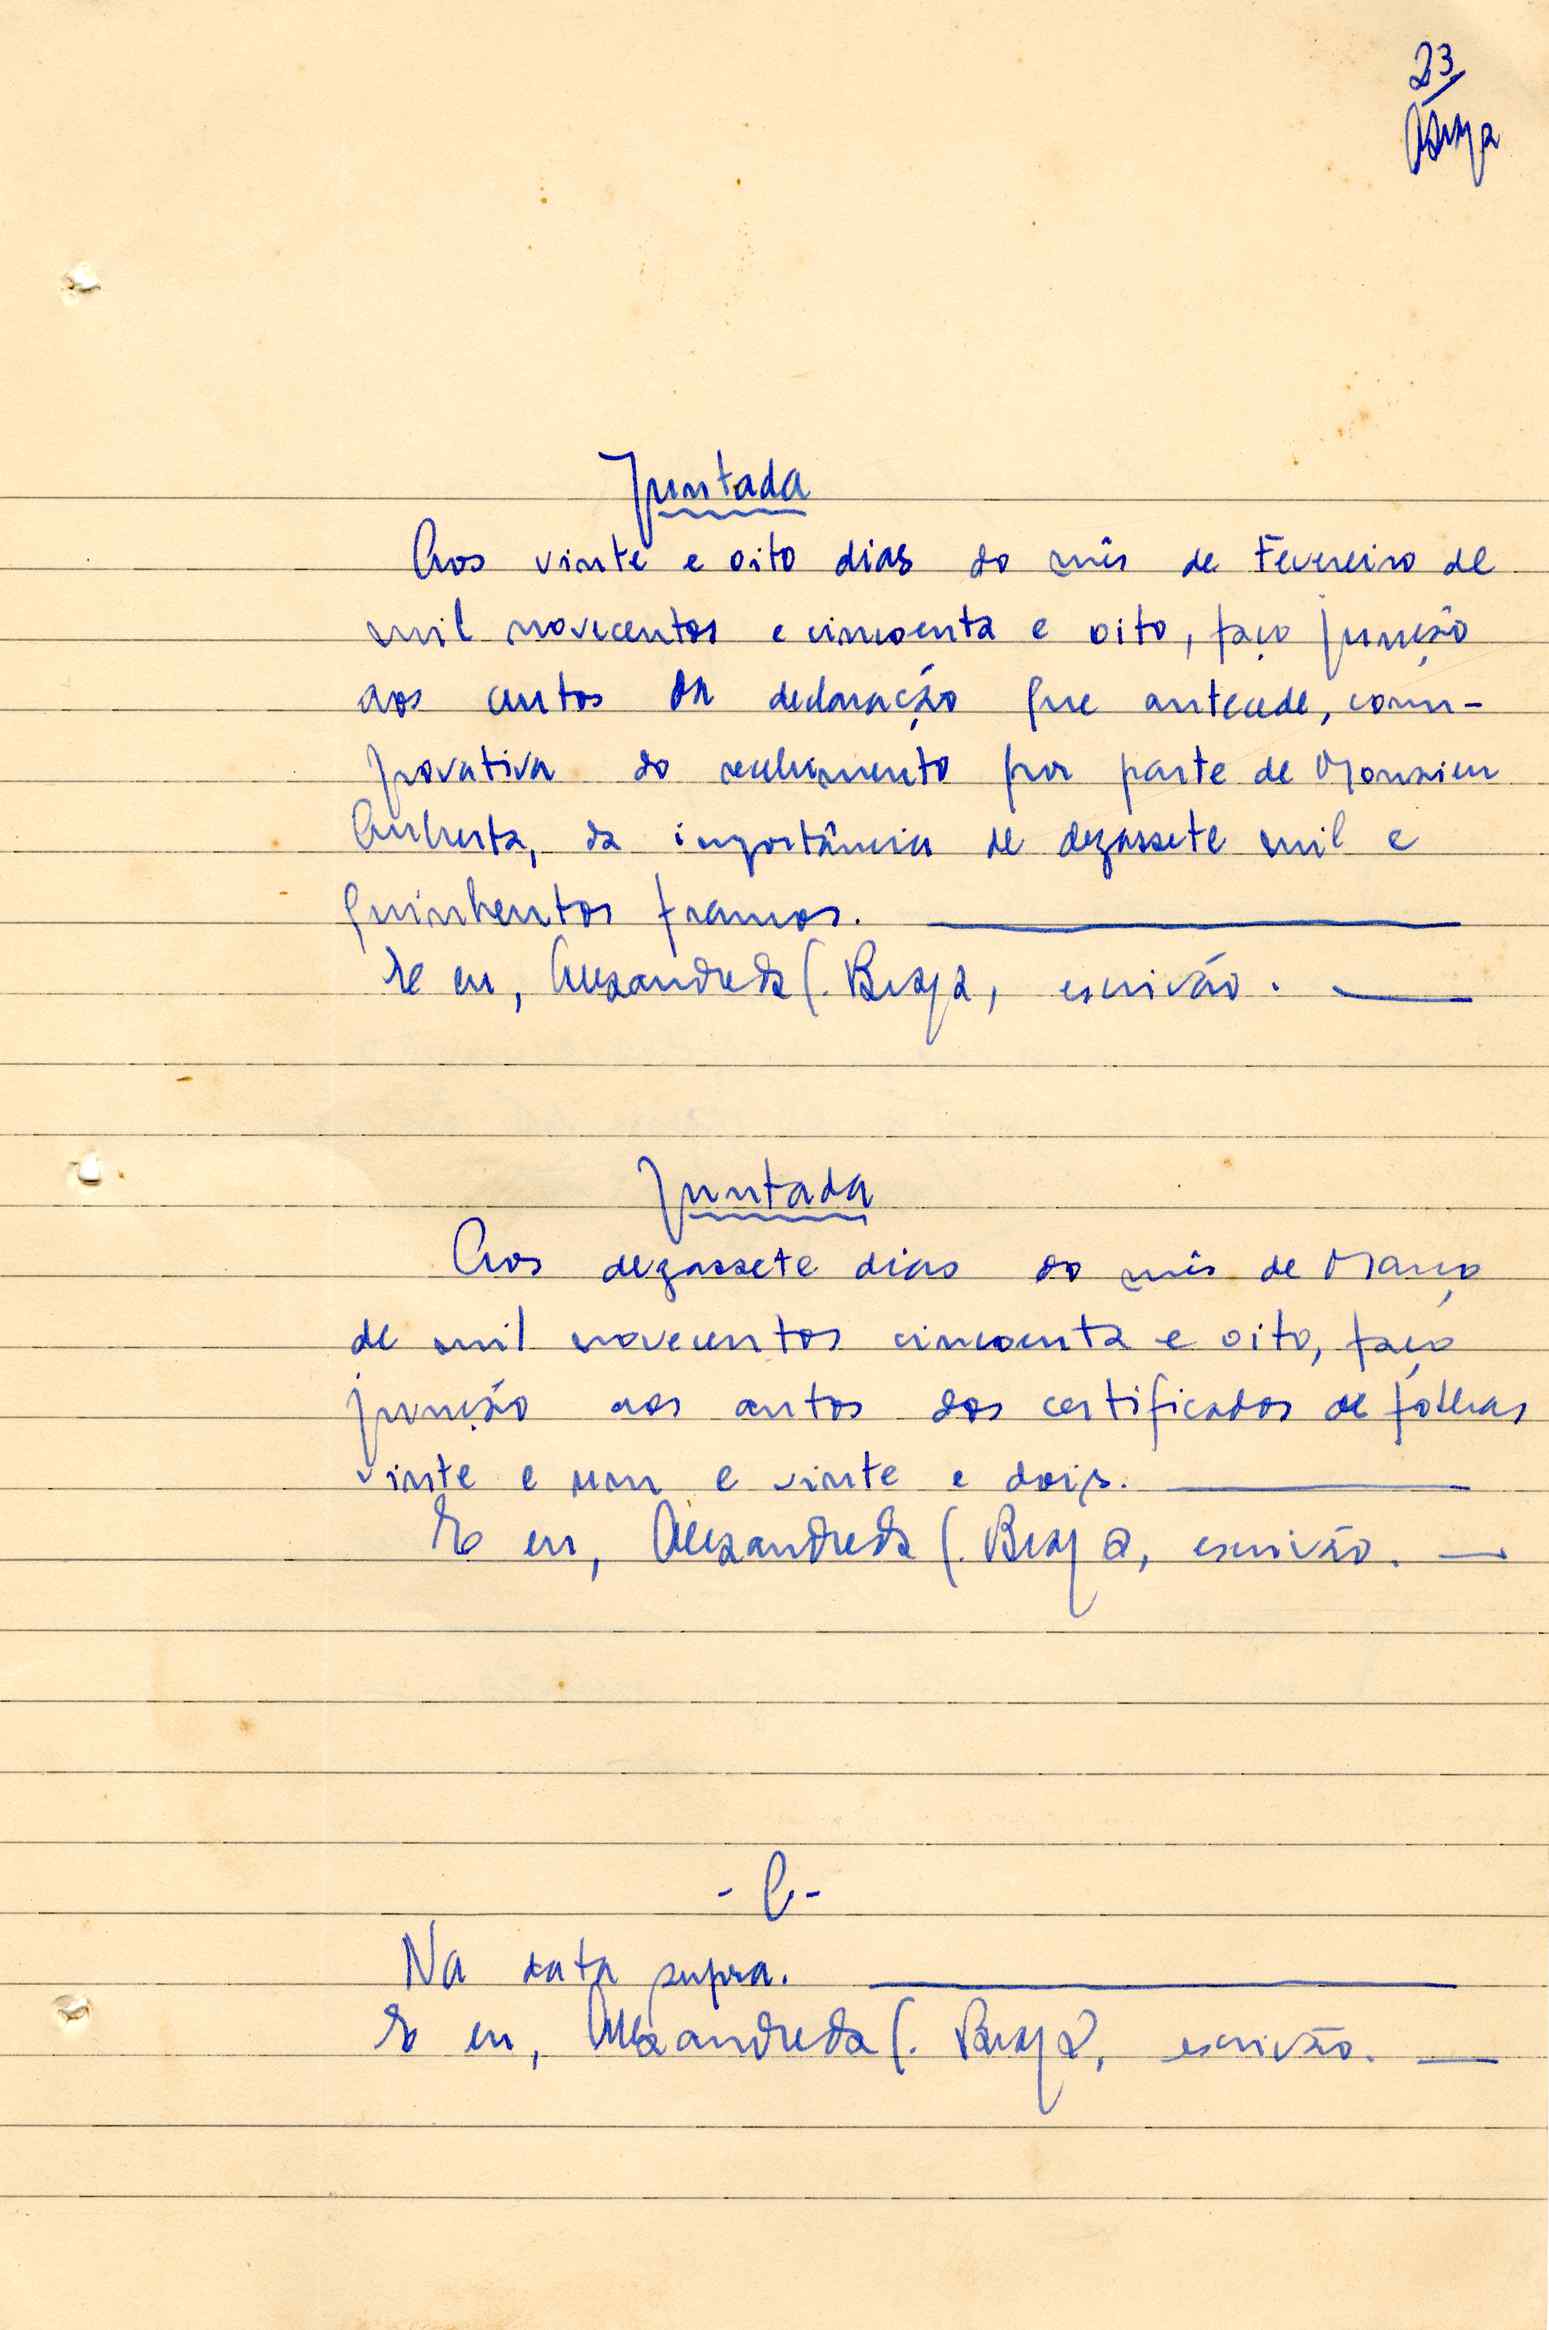 23
Braga
Juntada
Aos vinte e oito dias do mês de Fevereiro de
mil novecentos e cincoenta e oito, faço junção
aos autos da declaração que antecede, com-
provativa do recebimento por parte de Monsieur
da importância de dezassete mil e
quinhentos francos.
E eu, Alexandre da C. Braga, escrivão.
Juntada
Aos dezassete dias do mês de Março
de mil novecentos cincoenta e oito, faço
junção aos autos dos certificados de fôlhas
vinte e um e vinte e dois.
E eu, Alexandre da C. Braga, escrivão.
- C -
Na data supra.
E eu, Alexandre da C. Braga, escrivão.